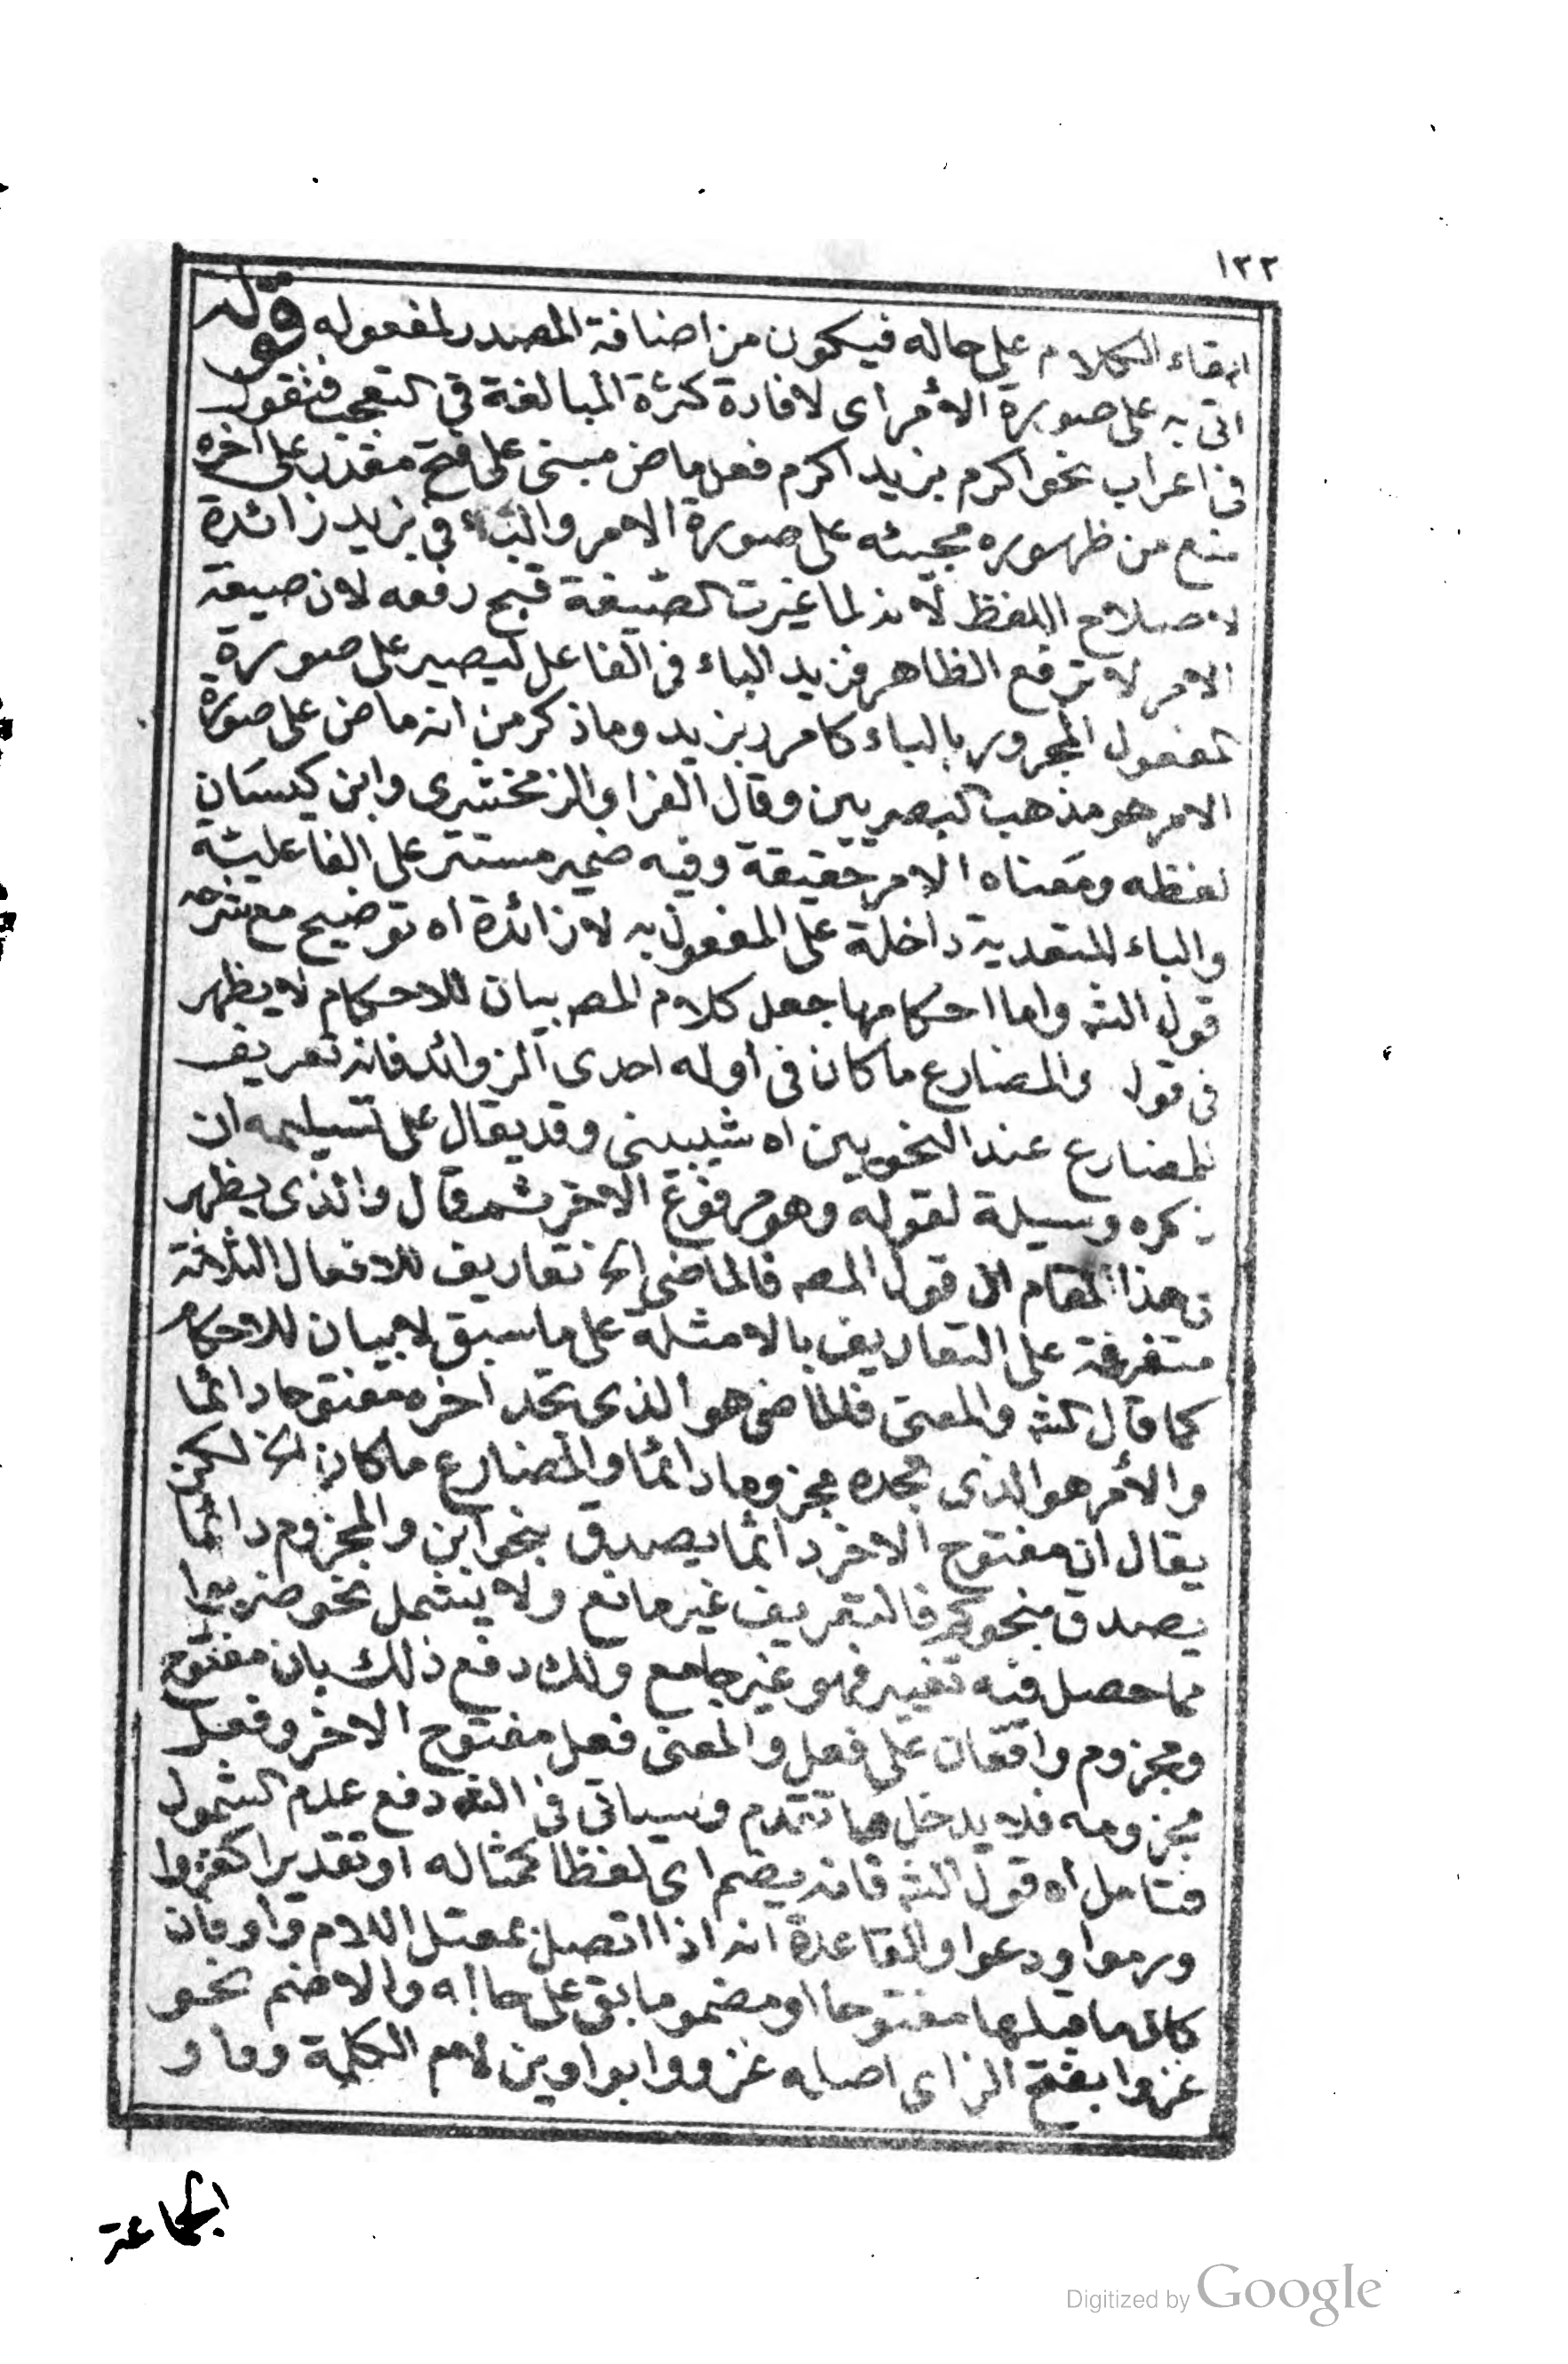 ١٢٢
ابقاء الكلام على حاله فيكون من اضافة المصدر لمفعوله قوله
اتى به على صورة الأمر اى لافادة كثرة المبالغة في التعجب فتقول
في اعراب نحو اكرم بزيد اكرم فعل ماض مبنى على فتح مقدر على اخره
منع من ظهوره مجيئه على صورة الامر والباء في بزيد زائدة
لاصلاح اللفظ لانه لما غيرت الصيغة قبح رفعه لان صيغة
الامر لا ترفع الظاهر فزيد الباء في الفاعل ليصير على صورة
المفعول المجرور بالباء كامرر بزيد وما ذكر من انه ماض على صورة
الامر هو مذهب البصريين وقال الفرا والزمخشرى وابن كيسان
لفظه ومعناه الامر حقيقة وفيه ضمير مستتر على الفاعلية
والباء للتعدية داخلة على المفعول به لا زائدة اه توضيح مع شرحه
قول الش واما احكامها جعل كلام المص بيان للاحكام لا يظهر
في قوله والمضارع ما كان في أوله احدى الزوائد فانه تعريف
للمضارع عند النحويين اه شبيبنى وقد يقال على تسليمه ان
ذكره وسيلة لقوله وهو مرفوع الاخر ثم قال والذى يظهر
في هذا المقام ان قول المص فالماضى الخ تعاريف للافعال الثلاثة
متفرغة على التعاريف بالامثلة على ما سبق لا بيان للاحكام
كما قال الش والمعنى فالماضى هو الذى تجد اخره مفتوحا دائما
والأمر هو الذى تجده مجزوما دائما والمضارع ما كان الخ لكن
يقال ان مفتوح الاخر دائما يصدق بنحو اين والمجزوم دائما
يصدق بنحو كم فالتعريف غير مانع ولا يشمل نحو ضربوا
مما حصل فيه تغيير فهو غير جامع ولك دفع ذلك بان مفتوح
ومجزوم واقعان على فعل والمعنى فعل مفتوح الاخر وفعل
مجزومه فلا يدخل ما تقدم وسياتى في الش دفع عدم الشمول
فتامل اه قول الش فانه يضم اى لفظا كمثاله او تقديرا كغزوا
ورموا ودعوا والقاعدة انه اذا اتصل بمعتل اللام واو فان
كان ما قبلها مفتوحا او مضموما بقى على حاله والا ضم نحو
غزوا بفتح الزاى اصله غزووا بواوين لام الكلمة وواو
الجماعة
Digitized by Google